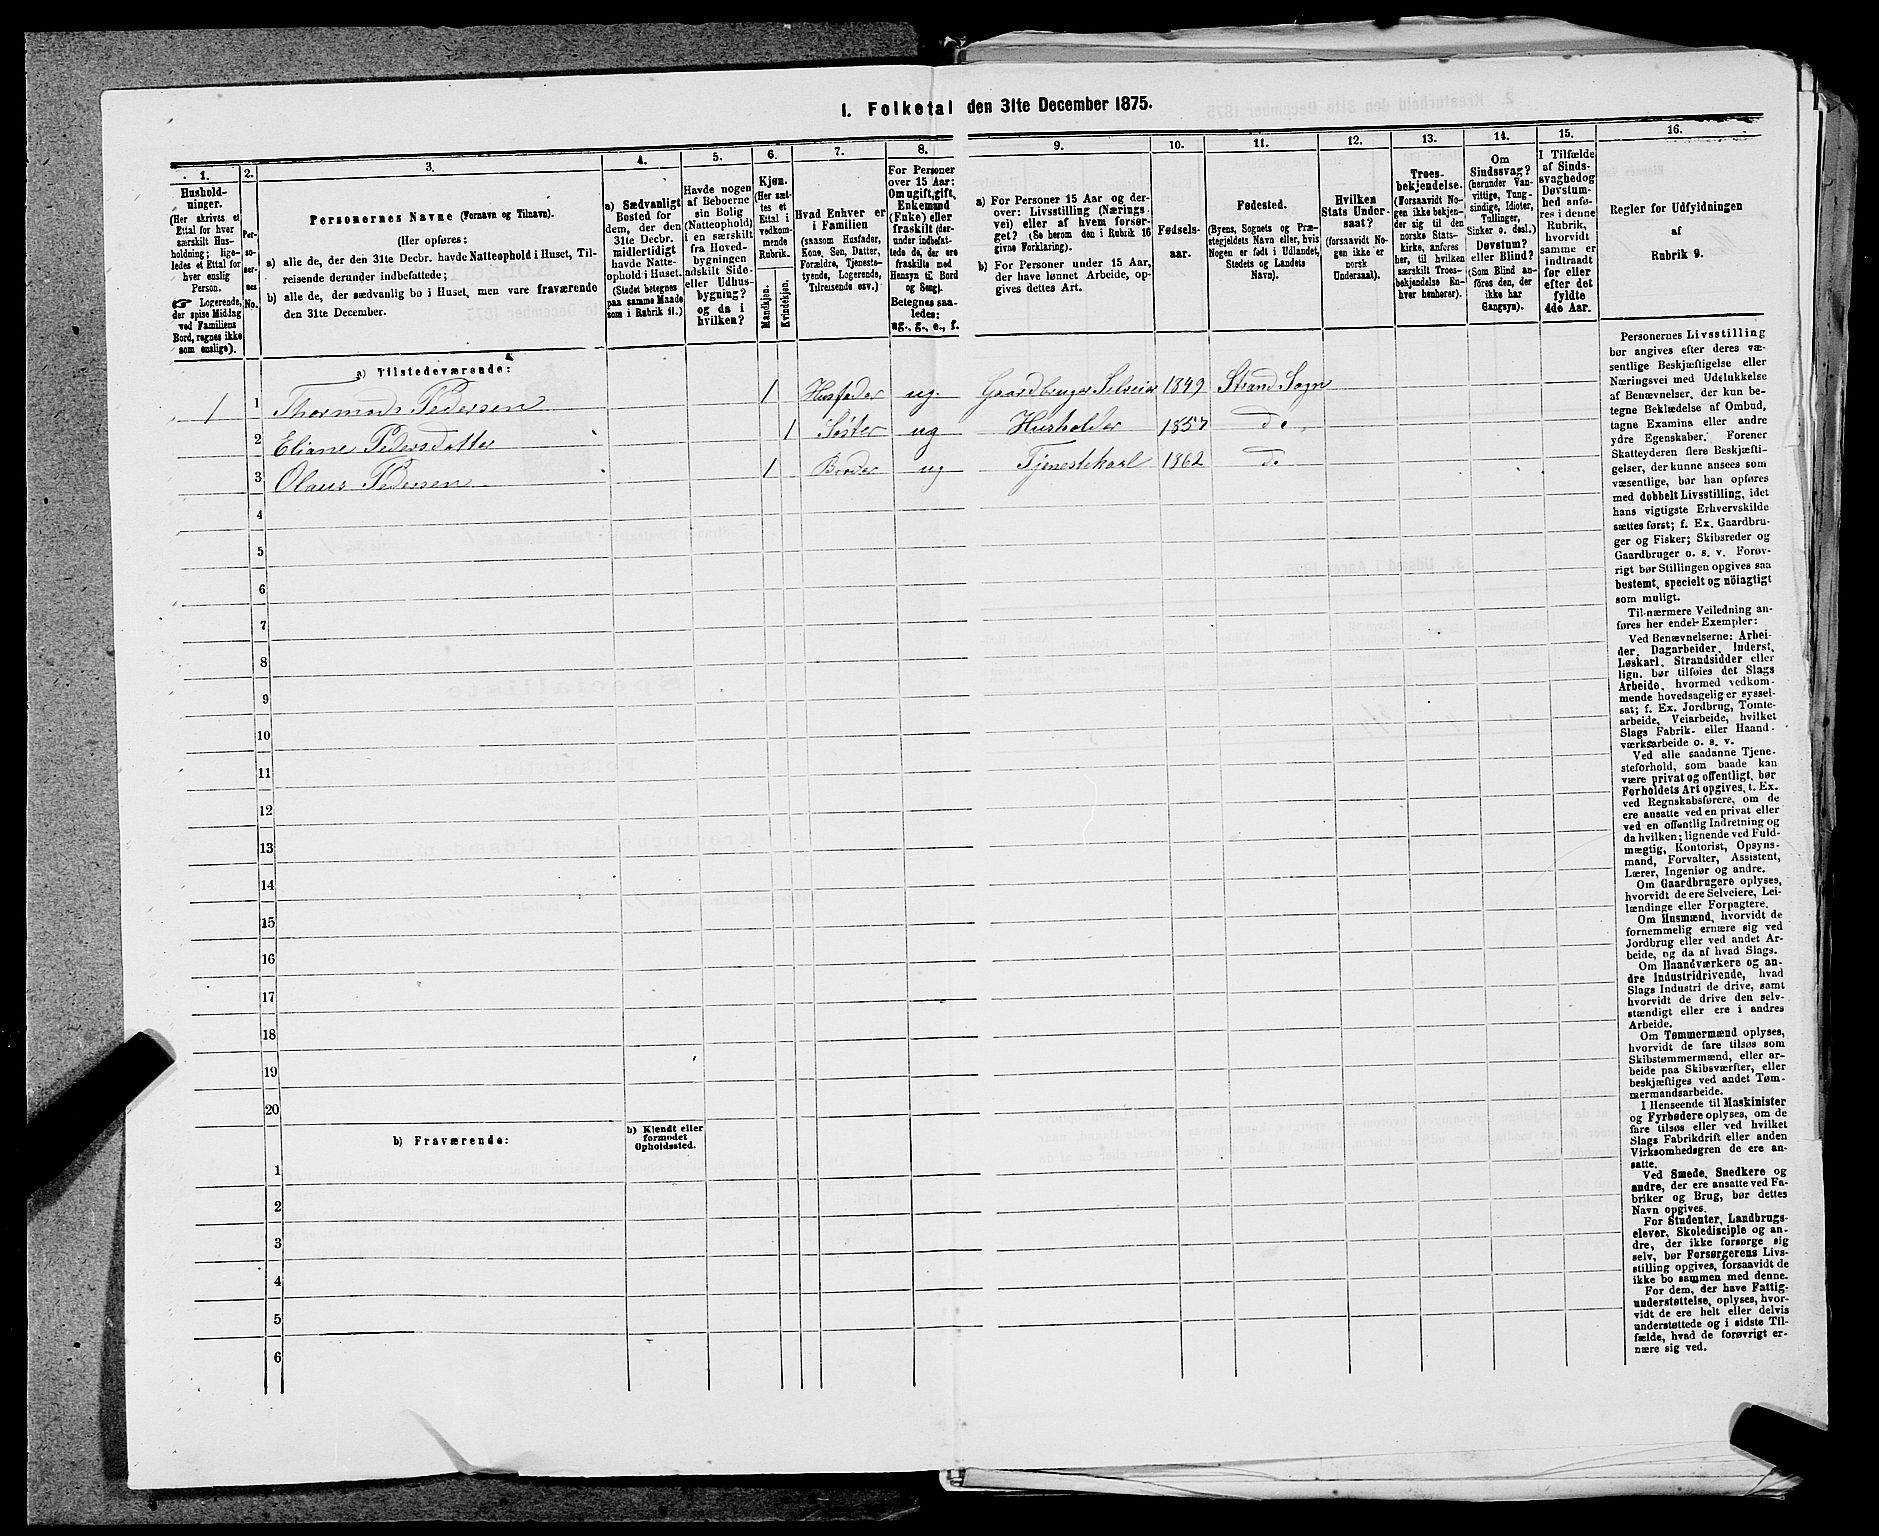 I. Folketal den 31te December 1875.
1. 2. 3. 4. 5. 6. 7. 8. 9. 10. 11. 12. 13. 14. 15. 16.
Hushold-
ninger.
(Her skrives et
Ettal for hver
særskilt Hus-
holdning; lige-
ledes et Ettal for
hver enslig
Person.
☞ Logerende,
der spise Middag
ved Familiens
Bord, regnes ikke
som enslige).
Per-
so-
ner-
nes
No.
Personernes Navne (Fornavn og Tilnavn).
(Her opføres:
a) alle de, den 31te Decbr. havde Natteophold i Huset, Til-
reisende derunder indbefattede;
b) alle de, der sædvanlig bo i Huset, men vare fraværende
den 31te December.
a) Sædvanligt
Bosted for
dem, der den
31te Decbr.
midlertidigt
havde Natte-
ophold i Huset.
(Stedet betegnes
paa samme Maade
som i Rubrik 11.)
Havde nogen
af Beboerne
sin Bolig
(Natteophold)
i en særskilt
fra Hoved-
bygningen
adskilt Side-
eller Udhus-
bygning?
og da i
hvilken?
Kjøn.
(Her sæt-
tes et
Ettal i
vedkom-
mende
Rubrik.
Mandkjøn.
Kvindekjøn.
Hvad Enhver er
i Familien
(saasom Husfader,
Kone, Søn, Datter,
Forældre, Tjeneste-
tyende, Logerende,
Tilreisende osv.)
For Personer
over 15 Aar:
Om ugift, gift,
Enkemand
(Enke) eller
fraskilt (der-
under indbefat-
tede de, der ere
fraskilte med
Hensyn til Bord
og Seng).
Betegnes saa-
ledes:
ug., g., e., f.
a) For Personer 15 Aar og der-
over: Livsstilling (Nærings
vei) eller af hvem forsør-
get? (Se herom den i Rubrik 16
givne Forklaring).
b) For Personer under 15 Aar,
der have lønnet Arbeide, op-
gives dettes Art.
Fødsels-
aar.
Fødested.
(Byens, Sognets og Præ-
stegjeldets Navn eller, hvis
Nogen er født i Udlandet,
Stedets og Landets
Navn).
Hvilken
Stats Under-
saat?
(forsaavidt No-
gen ikke er
norsk
Undersaat).
Troes-
bekjendelse.
(Forsaavidt No-
gen ikke bekjen-
der sig til den
norske Stats-
kirke, anføres
her, til hvilken
særskilt Troes-
bekjendelse En-
hver henhører).
Om
Sindssvag?
(herunder Van-
vittige, Tung-
sindige, Idioter,
Tullinger,
Sinker o. desl.)
Døvstum?
eller Blind?
(Som Blind an-
føres den, der
ikke har
Gangsyn).
I Tilfælde
af Sinds-
svaghed og
Døvstum-
hed anfø-
res i denne
Rubrik,
hvorvidt
samme er
indtraadt
før eller
efter det
fyldte
4de Aar.
Regler for Udfyldningen
af
Rubrik 9.
a) Tilstedeværende:
1 1 Thormods Pedersen 1 Husfader ug. Gaardbruger Selveier 1849 Strand Sogn
2 Eliane Pedersdatter 1 Søster ug Husholder 1857 do.
3 Olaus Pedersen 1 Broder ug Tjenestekarl 1862 do
4
5
6
7
8
9
10
11
12
13
14
15
16
17
18
19
20
b) Fraværende:
b) Kjendt eller
formodet
Opholdssted.
1
2
3
4
5
6
Personernes Livsstilling
bør angives efter deres væ-
sentlige Beskjæftigelse eller
Næringsvei med Udelukkelse
af Benævnelser, der kun be-
tegne Beklædelse af Ombud,
tagne Examina eller andre
ydre Egenskaber. Forener
Skatteyderen flere Beskjæfti-
gelser, der kunne ansees som
væsentlige, bør han opføres
med dobbelt Livsstilling, idet
hans vigtigste Erhvervskilde
sættes først; f. Ex. Gaardbru-
ger og Fisker; Skibsreder og
Gaardbruger o. s. v. Forøv-
rigt bør Stillingen opgives saa
bestemt, specielt og nöiagtigt
som muligt.
Til nærmere Veiledning an-
føres her endel Exempler:
Ved Benævnelserne: Arbei-
der, Dagarbeider, Inderst,
Løskarl, Strandsidder eller
lign. bør tilføies det Slags
Arbeide, hvormed vedkom-
mende hovedsagelig er syssel-
sat; f. Ex. Jordbrug, Tomte-
arbeide, Veiarbeide, hvilket
Slags Fabrik- eller Haand-
værksarbeide o. s. v.
Ved alle saadanne Tjene-
steforhold, som baade kan
være privat og offentligt, bør
Forholdets Art opgives, t. Ex.
ved Regnskabsførere, om de
ere ansatte ved en privat eller
ved en offentlig Indretning og
da hvilken; lignende ved Fuld-
mægtig, Kontorist, Opsyns-
mand, Forvalter, Assistent,
Lærer, Ingeniør og andre.
Om Gaardbrugere oplyses,
hvorvidt de ere Selveiere, Lei-
lændinge eller Forpagtere.
Om Husmænd, hvorvidt de
fornemmelig ernære sig ved
Jordbrug eller ved andet Ar-
beide, og da af hvad Slags.
Om Haandværkere og an-
dre Industridrivende, hvad
Slags Industri de drive, samt
hvorvidt de drive den selv-
stændigt eller ere i andres
Arbeide.
Om Tømmermænd oplyses,
hvorvidt de fare tilsøs som
Skibstømmermænd, eller ar-
beide paa Skibsværfter, eller
beskjæftiges ved andet Tøm-
mermandsarbeide.
I Henseende til Maskinister
og Fyrbødere oplyses, om de
fare tilsøs eller ved hvilket
Slags Fabrikdrift eller anden
Virksomhedsgren de ere an-
satte.
Ved Smede, Snedkere og
andre, der ere ansatte ved Fa-
briker og Brug, bør dettes
Navn opgives.
For Studenter, Landbrugs-
elever, Skoledisciple og an-
dre, der ikke forsørge sig
selv, bør Forsørgerens Livs-
stilling opgives, forsaavidt de
ikke bo sammen med denne.
For dem, der have Fattig-
understøttelse, oplyses, hvor-
vidt de ere helt eller delvis
understøttede og i sidste Til-
fælde, hvad de forøvrigt er-
nære sig ved.